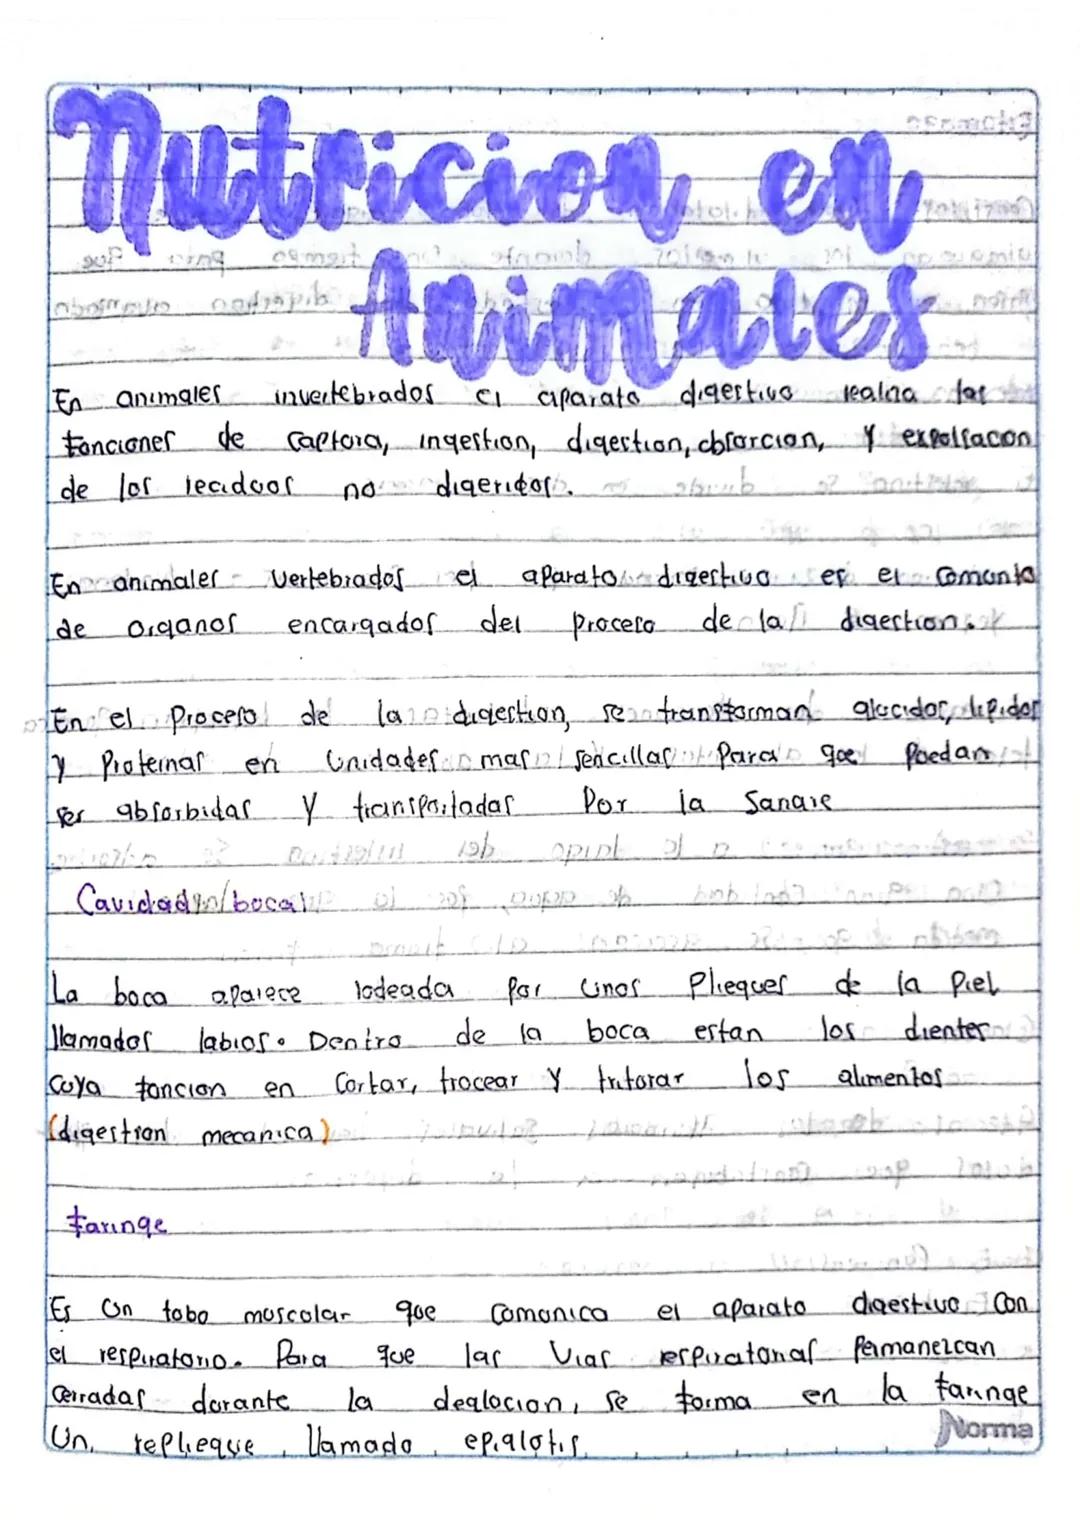 Nutricion en
Animales
En animales invertebrados el aparato digestivo realiza las
funciones de captura, ingestion, digestion, absorcion, y expulsacion
de los reciduos no digeridos.
En animales vertebrados el aparato digestivo es el comunto
de organos encargados del proceso de la digestion.
En el proceso de la digestion, se transforman glucidos, lipidos
y proteinas en unidades mas sencillas para que puedan
ser absorbidas y transportadas por la sangre
Cavidad/bocal
La boca aparece rodeada por unos pliegues de la piel
llamados labios. Dentro de la boca estan los dientes
cuya funcion en cortar, trocear y triturar los alimentos
(digestion mecanica)
faringe
Es un tubo muscular que comunica el aparato digestivo con
el respiratorio. Para que las vias respiratorias permanezcan
cerradas durante la deglucion, se forma en la faringe
un replieque llamado epiglotis.
Norma